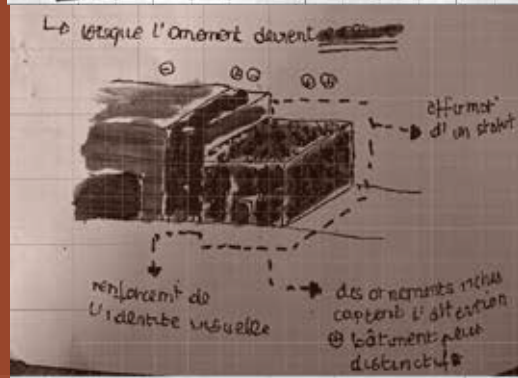 ↳ lorsque l'ornement devient
⊖ ⊕⊕ ⊕⊕
affirmat°
d'un statut
renforcem^t de
l'identité visuelle
des ornements riches
captent l'attention
⊕ bâtiment plus
distinctif